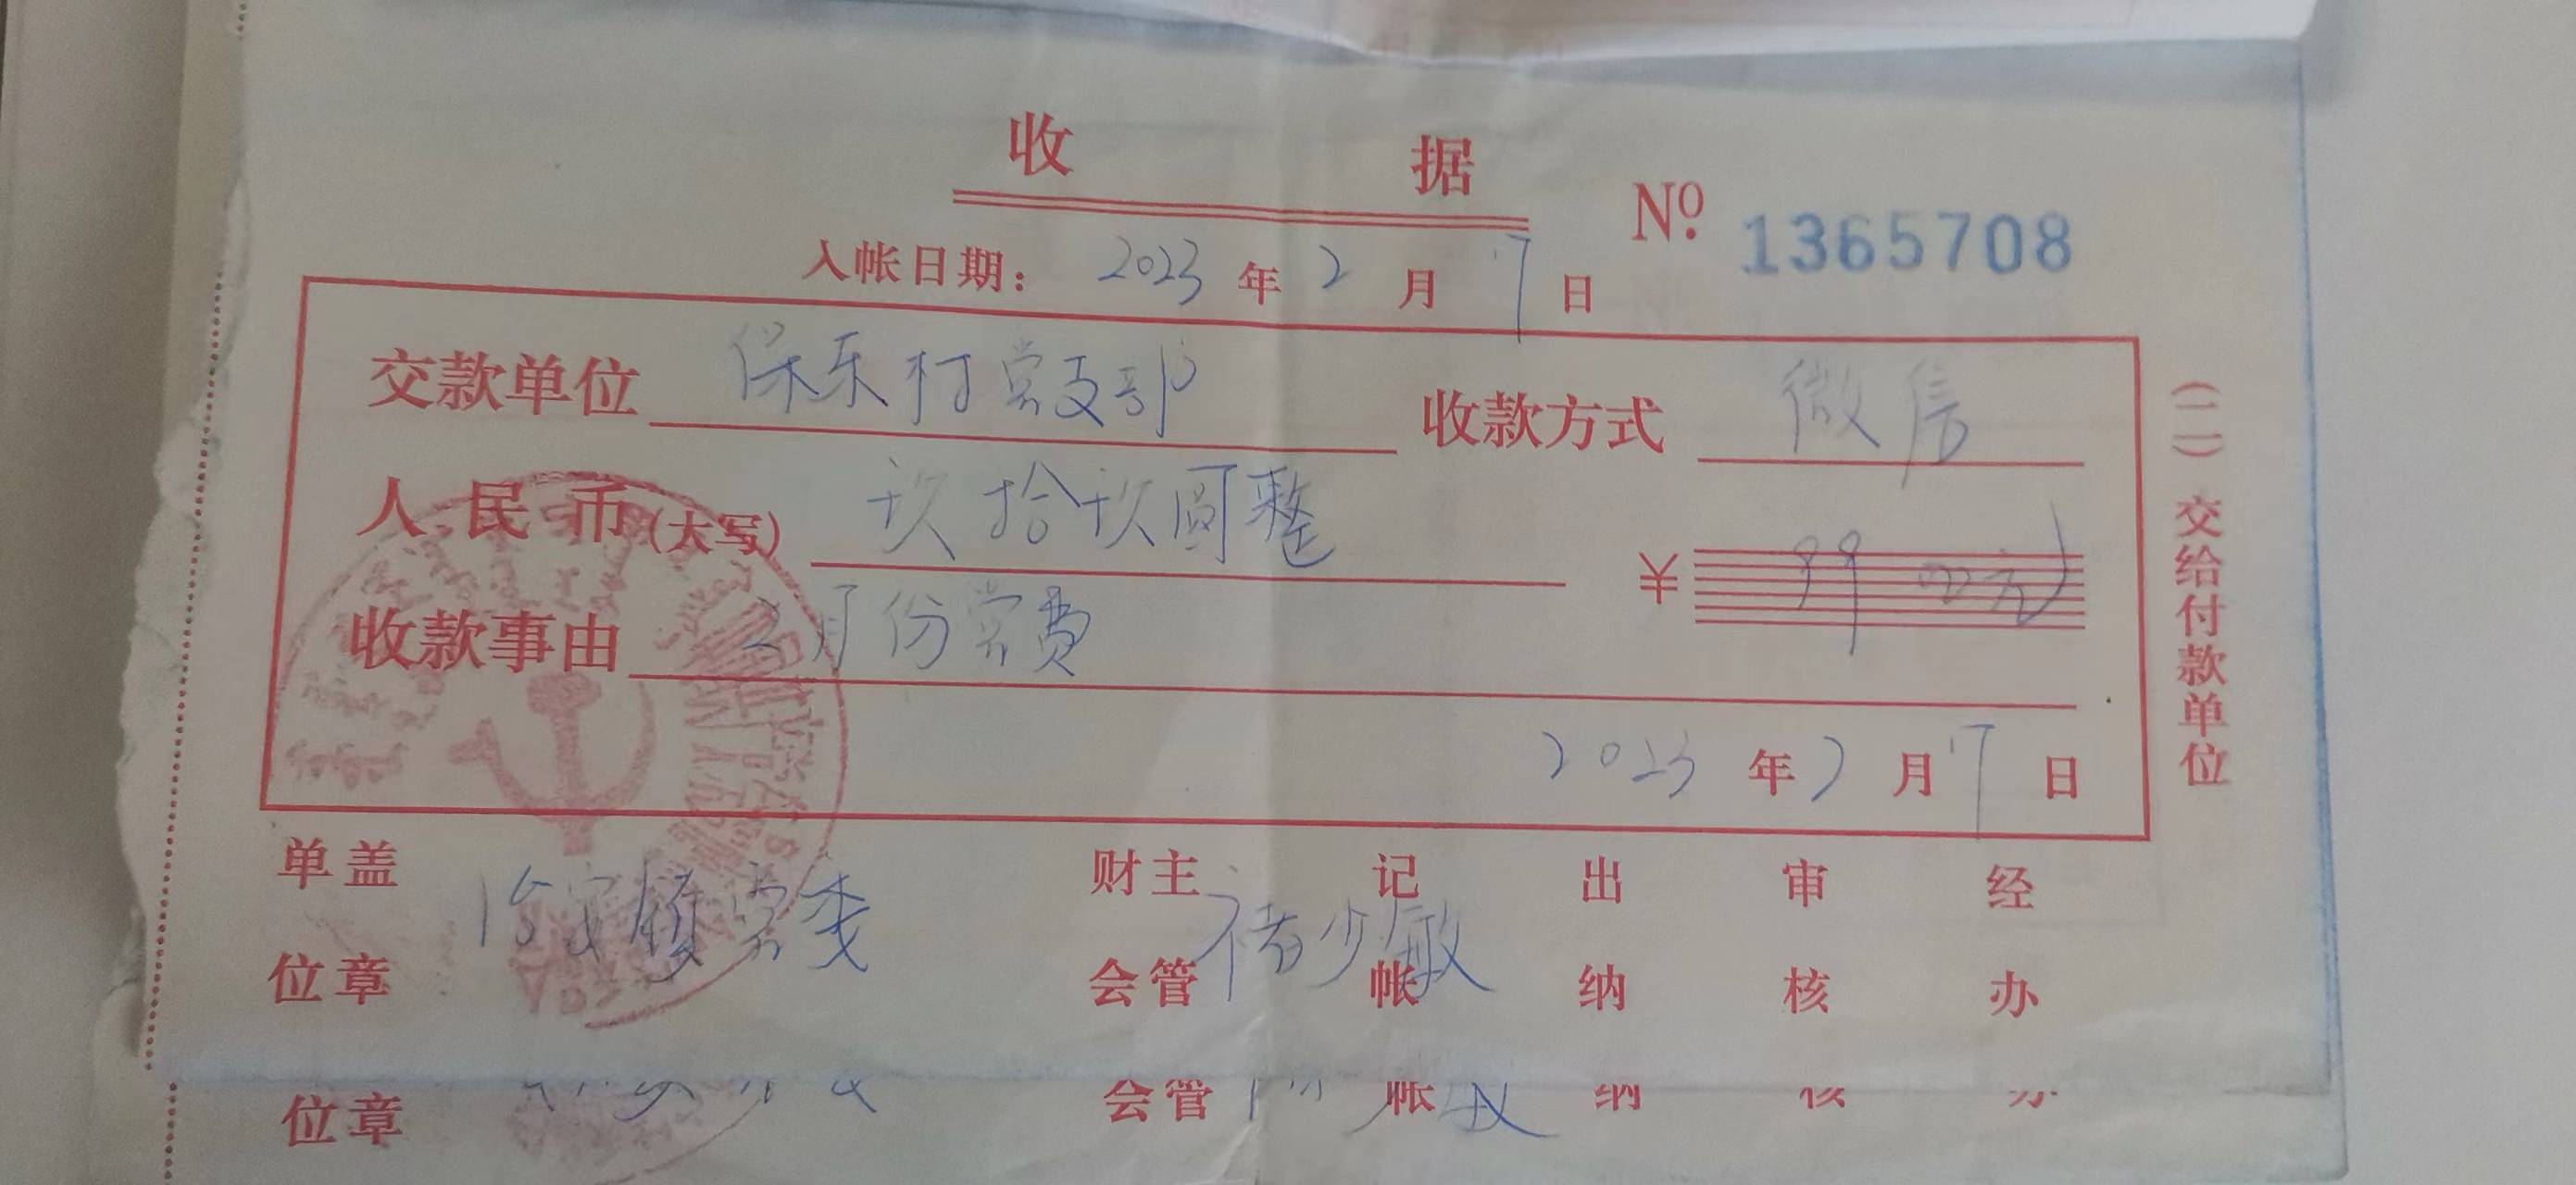 收据
№ 1365708
入帐日期： 2023 年 2 月 17 日
交款单位 保东村党支部 收款方式 微信
人民币(大写) 玖拾玖圆整 ¥ 99.00元
收款事由 2月份党费
2023 年 2 月 17 日
(二)交给付款单位
单位盖章 治安镇党委
财会主管 褚少敏 记帐 出纳 审核 经办
位章 会管 帐 纳 核 办